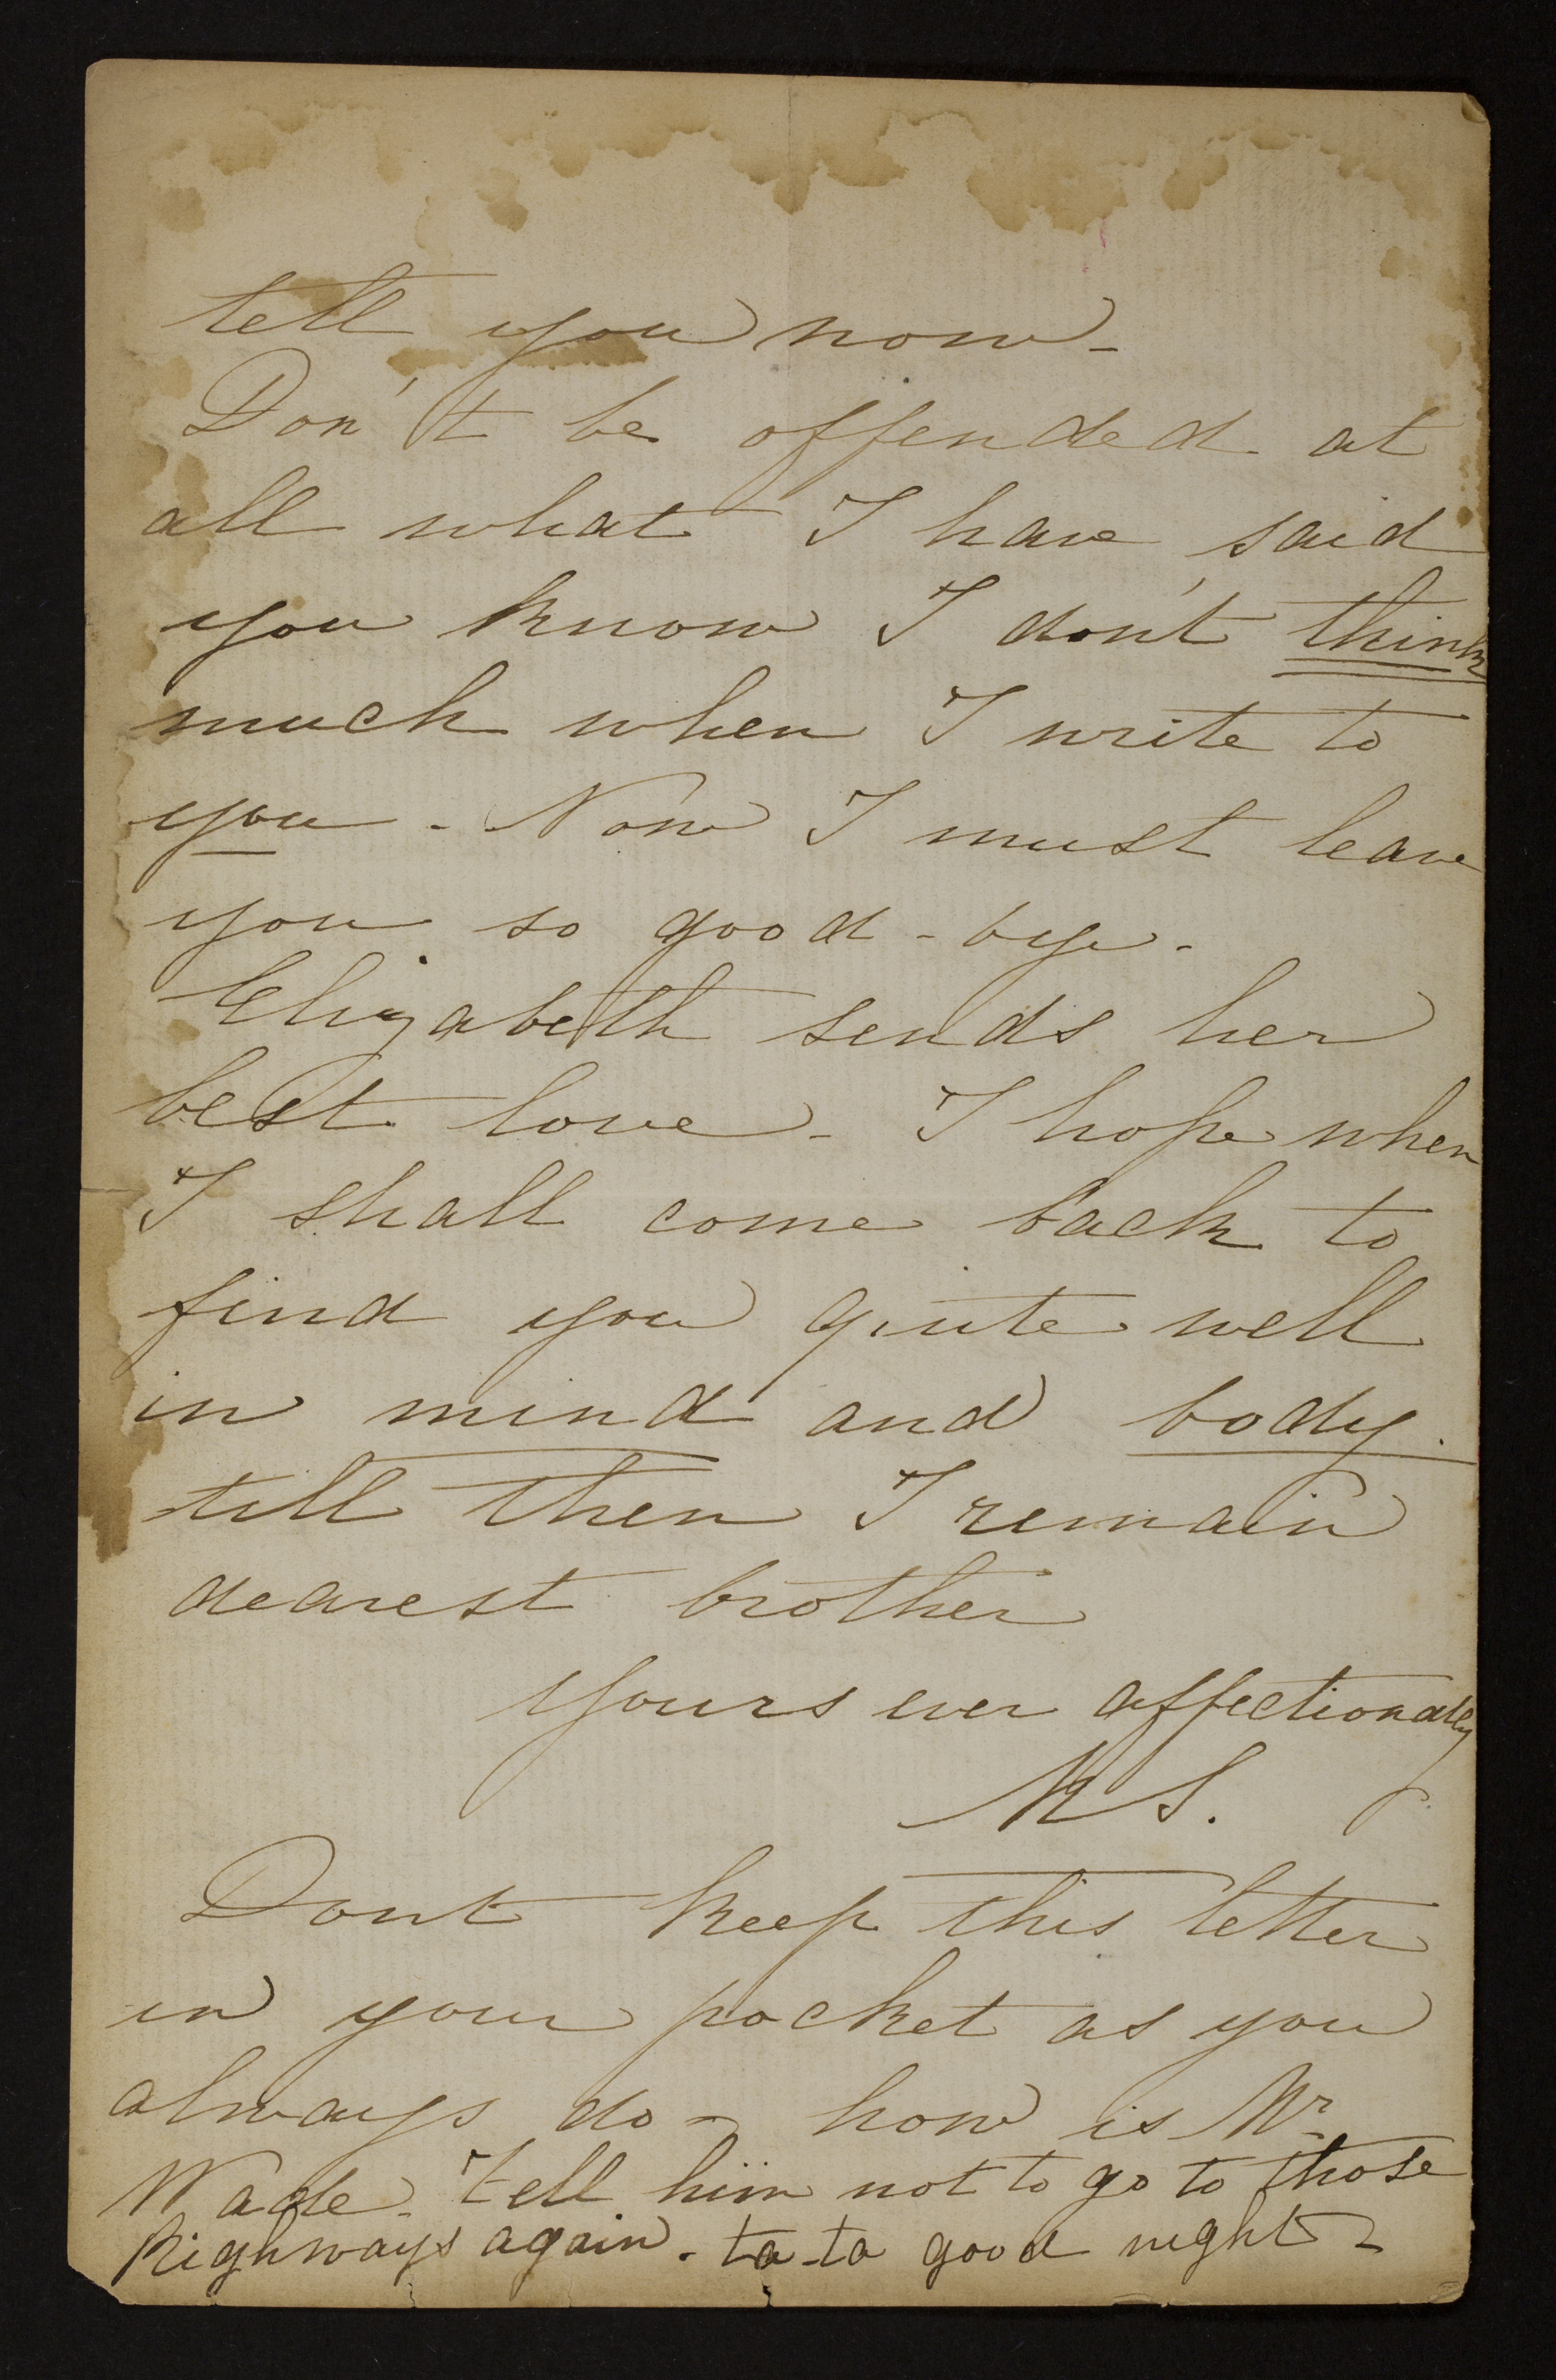 tell you now -
Don't be offended at
all what I have said
you know I don't think
much when I write to
you - Now I must leave
you so good - bye -
Elizabeth sends her
best love - I hope when
I shall come back to
find you quite well
in mind and body.
till then I remain
dearest brother
yours ever affectionately
M S.
Dont keep this letter
in your pocket as you
always do - how is Mr
Wade. tell him not to go to those
highways again - ta-ta good night -